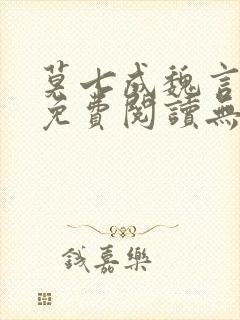 莫七成魏言
免費閱讀無
錢嘉樂